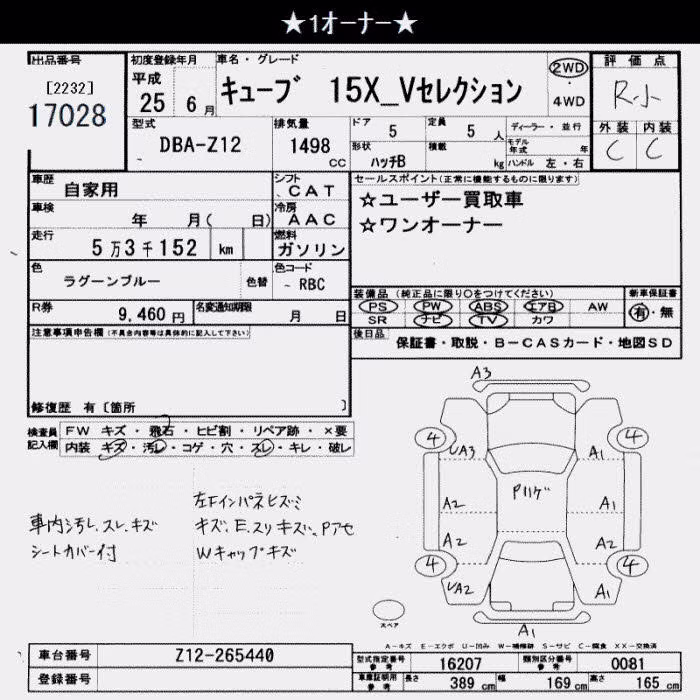 ★1オーナー★
出品番号
[2232]
17028
初度登録年月
平成
25 6月
車名・グレード
キューブ 15X_Vセレクション
2WD
・
4WD
評価点
R小
外装 内装
C C
型式
DBA-Z12
排気量
1498
CC
ドア
5
定員
5 人
ディーラー・並行
モデル年式 年
形状
ハッチB
積載
kg
ハンドル 左・右
車歴
自家用
シフト
CAT
車検
年 月( 日)
冷房
AAC
走行
5万3千152 km
燃料
ガソリン
色
ラグーンブルー
色替
色コード
- RBC
R券
9,460円
名変通知期限
月 日
セールスポイント(正常に機能するものに限ります)
☆ユーザー買取車
☆ワンオーナー
装備品 (純正品に限り○をつけてください)
PS PW ABS エアB AW
SR ナビ TV カワ
新車保証書
有・無
後日品
保証書・取説・B-CASカード・地図SD
注意事項申告欄(不具合内容等は具体的に記入して下さい)
修復歴 有〔箇所 〕
検査員記入欄
FW キズ・飛石・ヒビ割・リペア跡・×要
内装 キズ・汚レ・コゲ・穴・スレ・キレ・破レ
車内汚レ、スレ、キズ
シートカバー付
左下インパネヒズミ
キズ、E、スリキズ、Pアセ
Wキャップキズ
A3
4 4
UA3 A1
Pハゲ
A2 A1
A2 A2
4 4
UA2 A1
A1
スペア
A-キズ E-エクボ U-凹み W-補修跡 S-サビ C-腐食 XX-交換済
車台番号
Z12-265440
登録番号
型式指定番号
参考
16207
類別区分番号
参考
0081
車庫証明用
参考
長さ
389 cm
幅
169 cm
高さ
165 cm